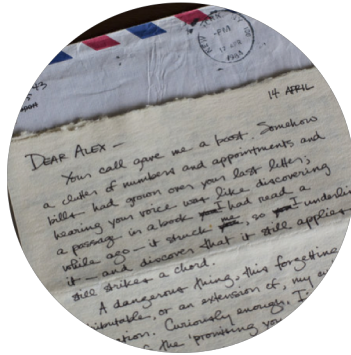 43
NEW
PM
17 APR
1984
14 APRIL
DEAR ALEX —
Your call gave me a boost. Somehow
a clutter of numbers and appointments and
bills had grown over your last letter;
hearing your voice was like discovering
a passage in a book you I had read a
while ago — it struck you me, so you I underlin
it — and discover that it still applies
still strikes a chord.
A dangerous thing, this forgetting
ibutable, or an extension of, my
ation. Curiously enough, I
the 'promising you